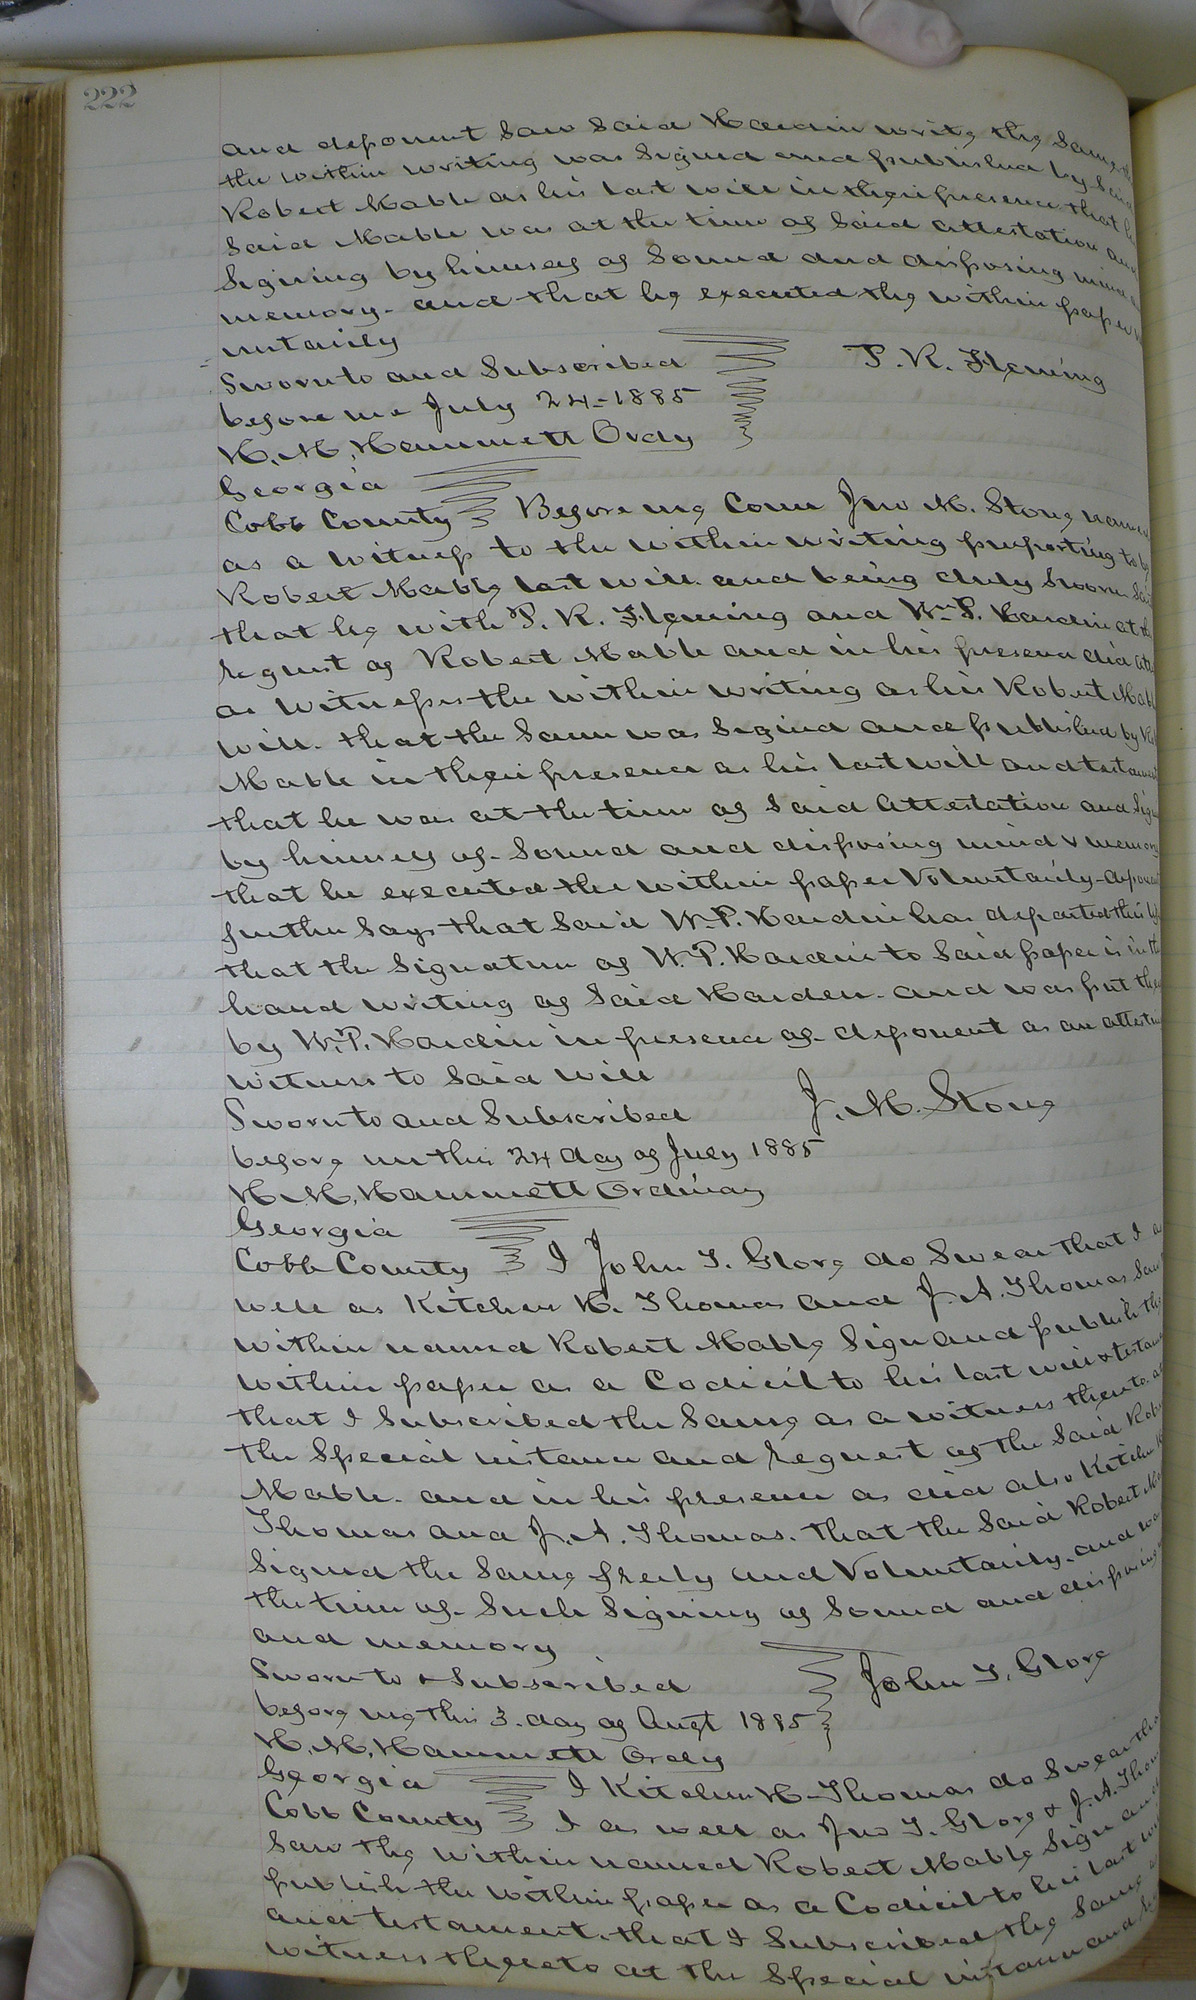 222
and deponent saw said Hardin write the same, that
the within writing was signed and published by said
Robert Mable as his last will in their presence that he
said Mable was at the time of said attestation and
signing by himself of sound and disposing mind &
memory. and that he executed the within paper vo
luntarily
Sworn to and Subscribed
P. R. Fleming
before me July 24-1885
H. M. Hammett Ordy
Georgia
Cobb County Before me Come Jno M. Stone named
as a witness to the within writing purporting to be
Robert Mable last will and being duly sworn Says
that he with P. R. Fleming and Wm P. Hardin at the
request of Robert Mable and in his presence did
as witnesses the within writing as his Robert Mable
will. that the same was signed and published by
Mable in their presence as his last will and testament
that he was at the time of said attestation and
by himself of sound and disposing mind & memory
that he executed the within paper Voluntarily-deponent
further says that said W.P. Hardin has departed this life
that the signature of W. P. Hardin to said paper is in the
hand writing of said Harden. and was put there
by W.P. Hardin in presence of deponent as an attesting
witness to said will
J. M. Stone
Sworn to and Subscribed
before me this 24 day of July 1885
H. M. Hammett Ordinay
Georgia
Cobb County I John T. Glore do Swear that I as
well as Kitchen H. Thomas and J. A. Thomas Saw
within named Robert Mable Sign and publish the
within paper as a Codicil to his last will & testament
that I Subscribed the same as a witness thereto at
the Special instance and request of the said Robert
Mable. and in his presence as did also Kitchen H
Thomas and J. A. Thomas. that the said Robert
Signed the same freely and Voluntarily. and was
the time of such signing of sound and disposing
and memory
Sworn to & Subscribed
John T. Glore
before me this 3. day of Augt 1885
H. M. Hammett Ordy
Georgia I Kitchen H Thomas do Swear that
Cobb County I as well as Jno T. Glore & J. A. Thomas
Saw the within named Robert Mable Sign and
publish the within paper as a Codicil to his last will
and testament, that I Subscribed the same
witness thereto at the Special instance and